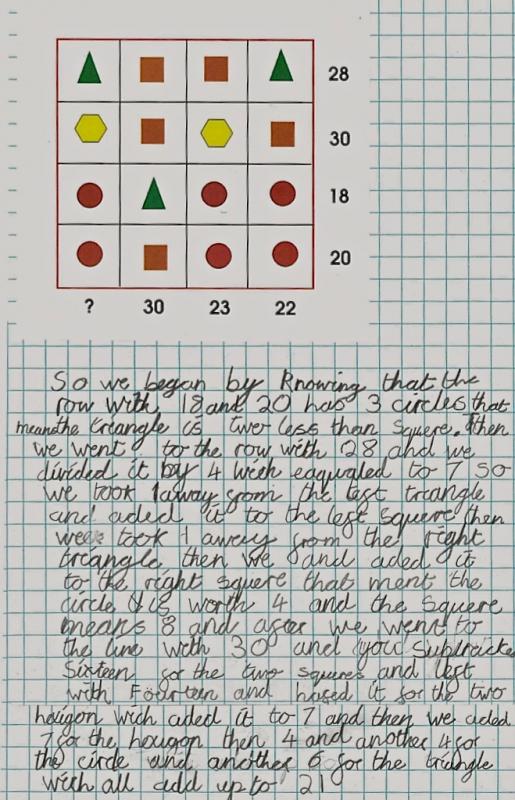 28
30
18
20
? 30 23 22
So we began by Knowing that the
row with 18 and 20 has 3 circles that
means the triangle is two less than square. Then
we went to the row with 28 and we
divided it by 4 wich eaqualed to 7 so
we took 1 away from the left triangle
and aded it to the left square then
we took 1 away from the right
triangle then we and aded it
to the right square that ment the
circle is worth 4 and the square
means 8 and after we went to
the line with 30 and you subtracted
Sixteen for the two squares and left
with Fourteen and halfed it for the two
hexigon wich aded it to 7 and then we aded
7 for the hexigon then 4 and another 4 for
the circle and another 6 for the triangle
wich all add up to 21